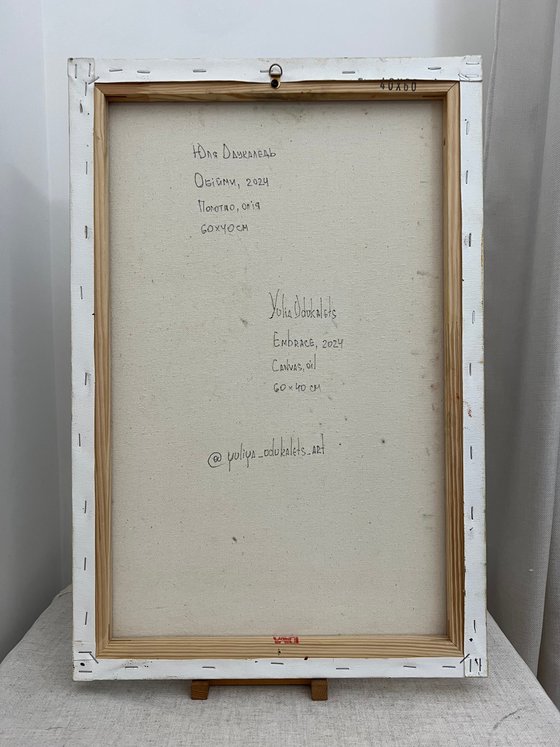 40X60
Юля Одукалець
Обійми, 2024
Полотно, олія
60x40 см
Yulia Odukalets
Embrace, 2024
Canvas, oil
60x40 cm
@yuliya_odukalets_art